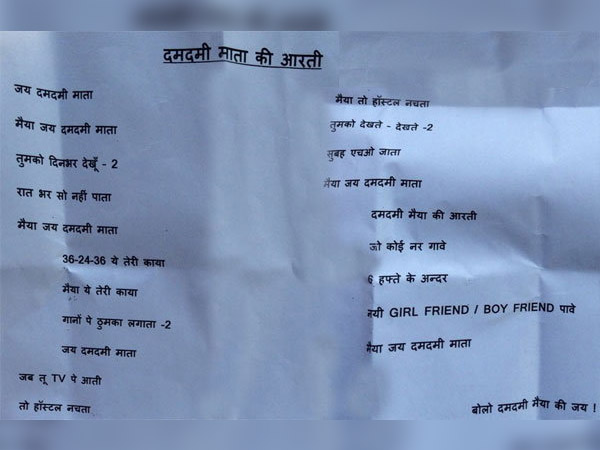 दमदमी माता की आरती
जय दमदमी माता
मैया जय दमदमी माता
तुमको दिनभर देखूँ - 2
रात भर सो नहीं पाता
मैया जय दमदमी माता
36-24-36 ये तेरी काया
मैया ये तेरी काया
गानों पे ठुमका लगाता -2
जय दमदमी माता
जब तू TV पे आती
तो हॉस्टल नचता
मैया तो हॉस्टल नचता
तुमको देखते - देखते -2
सुबह एचओ जाता
मैया जय दमदमी माता
दमदमी मैया की आरती
जो कोई नर गावे
6 हफ्ते के अन्दर
नयी GIRL FRIEND / BOY FRIEND पावे
मैया जय दमदमी माता
बोलो दमदमी मैया की जय !